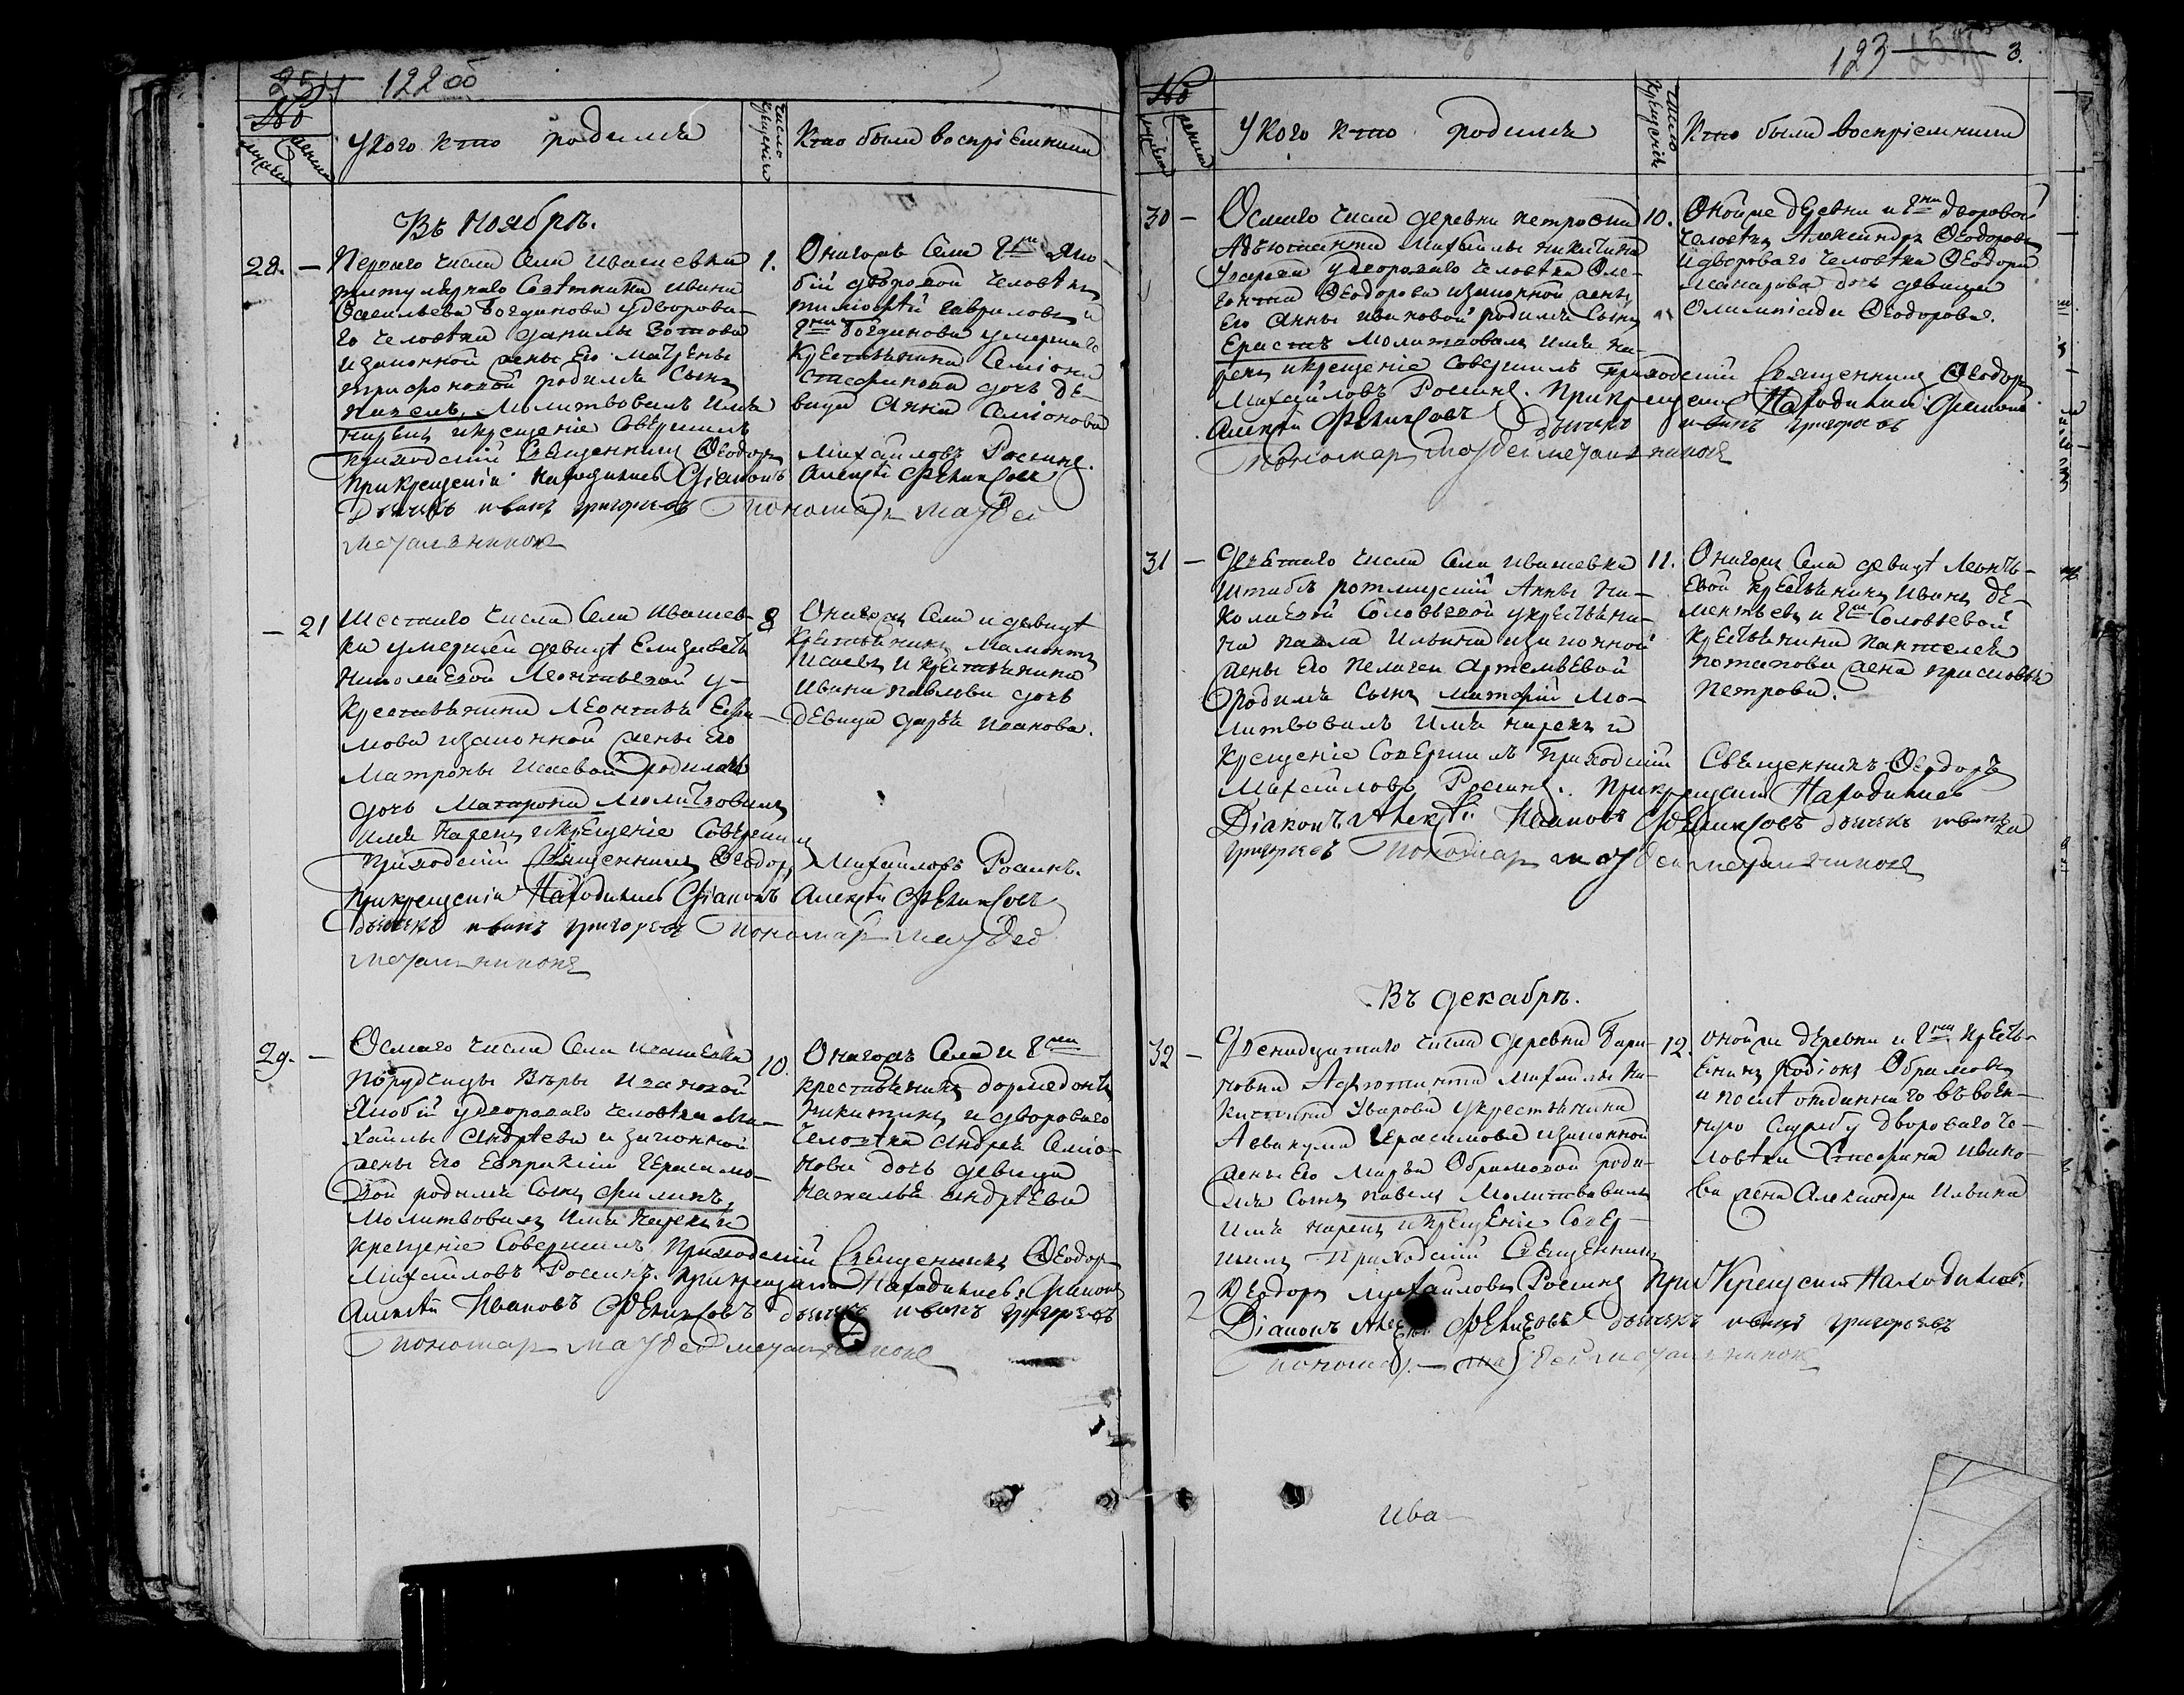 122 об
№
У кого кто родился
Число крещенія
Кто были воспріемники
Въ Ноябрѣ.
28. — Перваго числа села Ивашевки
титулярнаго Совѣтника Ивана
Васильева Богданова у дворова-
го человѣка Данилы Зотова
и законной жены его Матрены
Трифоновой родился сынъ
Павелъ, Молитвовалъ имя
нарекъ и крещеніе совершилъ
приходскій Священникъ Ѳеодоръ Михайловъ Росинъ.
При крещеніи находились Діаконъ Алексѣй Фениксовъ
дьячекъ Иванъ Григорьевъ пономарь Матвей
1. Онагожъ села Гжи Яко-
бій дворовой человѣкъ
Тимофѣй Гавриловъ и
Гжи Богданова умершаго
крестьянина Семіона
Стафинова дочь дѣ-
вица Анна Семіонова
— 21 Шестаго числа села Ивашев-
ки умершей девицѣ Елизаветы
Николаевой Леонтьевой у
крестьянина Леонтья Ефи-
мова и законной жены его
Матроны Исаевой родилась
дочь Матрона Молитвовалъ
имя нарекъ и крещеніе совершилъ
приходскій Священникъ Ѳеодоръ Михайловъ Росинъ.
При крещеніи Находились Діаконъ Алексѣй Фениксовъ
дьячекъ Иванъ Григорьевъ пономарь Матвей
8 Онагожъ села и девицѣ
крестьянинъ Мамонтъ
Исаевъ и крестьянина
Ивана Павлова дочь
девица Дарья Иванова.
29. — Осмаго числа села Ивашевки
Порудчицы Вѣры Ивановой
Якобій у двороваго человѣка Ми-
хайлы Андрѣева и законной
жены его Евпраксіи Герасимо-
вой родился сынъ Филипъ,
Молитвовалъ имя нарекъ и
крещеніе совершилъ приходскій Священникъ Ѳеодоръ
Михайловъ Росинъ. При крещеніи Находились: Діаконъ
Алексѣй Ивановъ Фениксовъ дьячекъ Иванъ Григорьевъ
пономарь Матвей
10. Онагожъ села и Гжи
крестьянинъ Дормедонтъ
Никитинъ и двороваго
человѣка Андрея Семіо-
нова дочь девица
Наталья Андрѣева
123 3.
№
У кого кто родился
Число крещенія
Кто были воспріемники
30 — Осмаго числа деревни Петровки
Адъютанта Михайлы Никитина
Уварова у двороваго человѣка
Ѳеодорова и законной жены
его Анны Ивановой родился сынъ
Ерастъ Молитвовалъ имя на-
рекъ и крещеніе совершилъ приходскій Священникъ Ѳеодоръ
Михайловъ Росинъ. При крещеніи Находились: Діаконъ
Алексѣй Фениксовъ дьячекъ Иванъ Григорьевъ
пономарь Матвей
10. Онойже деревни и Гжи дворовой
человѣкъ Александръ Ѳеодоровъ
и двороваго человѣка Ѳеодора
Макарова дочь девица
Олимпіада Ѳеодорова.
31 — Девятаго числа села Ивашевки
Штабъ ротмистрши Анны Ни-
колаевой Соловьевой у крестьяни-
на Павла Ильина и законной
жены его Пелагеи Артемьевой
родился сынъ Матфій Мо-
литвовалъ имя нарекъ и
крещеніе совершилъ Приходскій Священникъ Ѳеодоръ
Михайловъ Росинъ. При крещеніи Находились
Діаконъ Алексѣй Ивановъ Фениксовъ дьячекъ Иванъ
Григорьевъ пономарь Матвей
11. Онагожъ села девицѣ Леонть-
евой крестьянинъ Иванъ Де-
ментьевъ и Гжи Соловьевой
крестьянина Пантелея
Потапова жена Прасковья
Петрова.
Въ декабрѣ.
32 — Двенадцатаго числа деревни Бари-
новки Адъютанта Михайлы Ни-
китина Уварова у крестьянина
Аввакума Герасимова и законной
жены его Марьи Абрамовой роди-
лся сынъ Павелъ Молитвовалъ
имя нарекъ и крещеніе совер-
шилъ Приходскій Священникъ
Ѳеодоръ Михайловъ Росинъ При Крещеніи Находились:
Діаконъ Алексѣй Фениксовъ дьячекъ Иванъ Григорьевъ
пономарь Матвей
12. Онойже деревни и Гжи кресть-
янинъ Родіонъ Абрамовъ
и послѣ отданнаго въ воен-
ную службу двороваго че-
ловѣка Стафина Ивано-
ва жена Александра Ильина
Ива